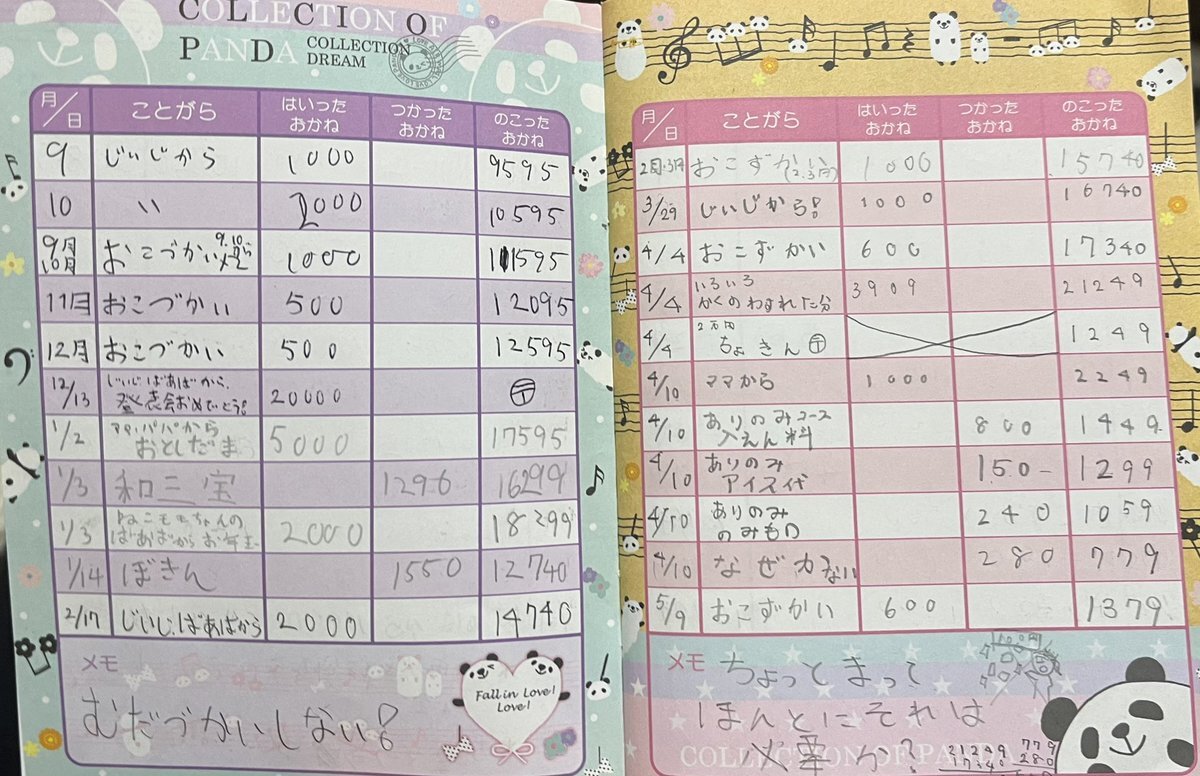 COLLECTION OF
PANDA COLLECTION
DREAM
月/日 ことがら はいったおかね つかったおかね のこったおかね
9 じいじから 1000 9595
10 い 2000 10595
9月10月 おこづかい 1000 11595
11月 おこづかい 500 12095
12月 おこづかい 500 12595
12/13 じいじばあばから、発表会おめでとう! 20000 〒
1/2 ママ・パパからおとしだま 5000 17595
1/3 和三宝 1296 16299
1/3 ばあばからお年玉 2000 18299
1/14 ぼきん 1550 12740
2/17 じいじ、ばあばから 2000 14740
メモ
むだづかいしない!
Fall in Love!
Love!
月/日 ことがら はいったおかね つかったおかね のこったおかね
2月・3月 おこずかい(2.3月) 1000 15740
3/29 じいじから! 1000 16740
4/4 おこずかい 600 17340
4/4 いろいろかくのわすれた分 3909 21249
4/4 2万円ちょきん〒 1249
4/10 ママから 1000 2249
4/10 ありのみコース入えん料 800 1449
4/10 ありのみアイス代 150- 1299
4/10 ありのみのみもの 240 1059
4/10 なぜかない 280 779
5/9 おこずかい 600 1379
メモ ちょっとまって
ほんとにそれは
COLLECTION OF PANDA
21249 779
280